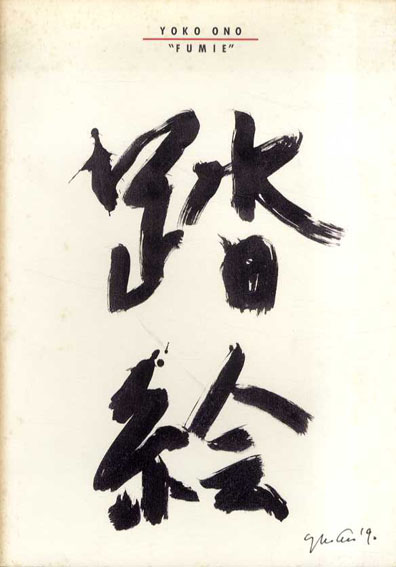 YOKO ONO
"FUMIE"
踏
絵